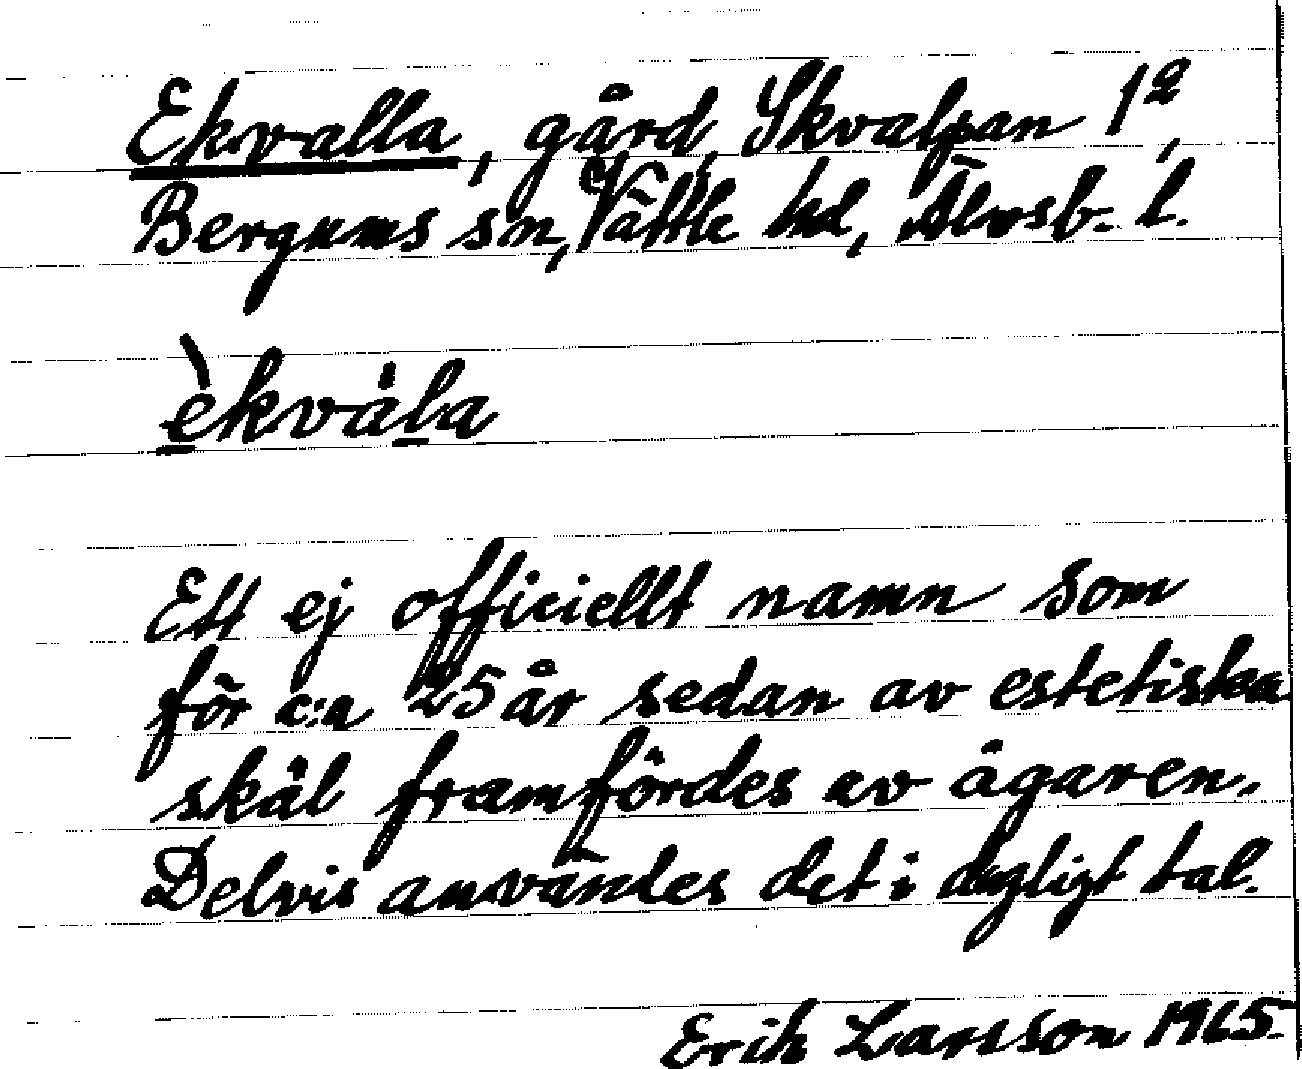 Ekvalla, gård, Skvalpan 1²,
Bergums sn, Vättle hd, Älvsb. l.
èkvåla
Ett ej officiellt namn som
för c:a 25 år sedan av estetiska
skäl framfördes av ägaren.
Delvis användes det i dagligt tal.
Erik Larsson 1965.